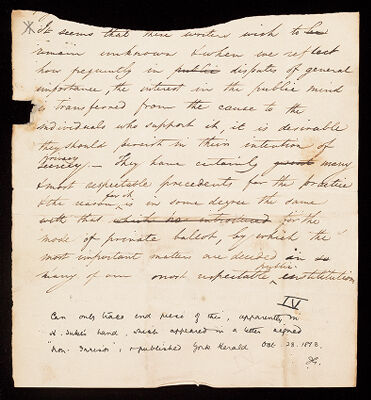 X It seems that these writers wish to be
remain unknown & when we reflect
how frequently in public disputes of general
importance, the interest in the public mind
is transferred from the cause to the
individuals who support it, it is desirable
they should persist in their intention of
privacy
secrecy. — They have certainly quoted many
& most respectable precedents for the practice
for it
& the reason is in some degree the same
with that which has introduced for the
mode of private ballot, by which the
most important matters are decided in so
public
many of our most respectable institutions
IV
Can only trace end piece of this, apparently in
hand, which appeared in a letter signed
published York Herald Oct. 23. 1813.